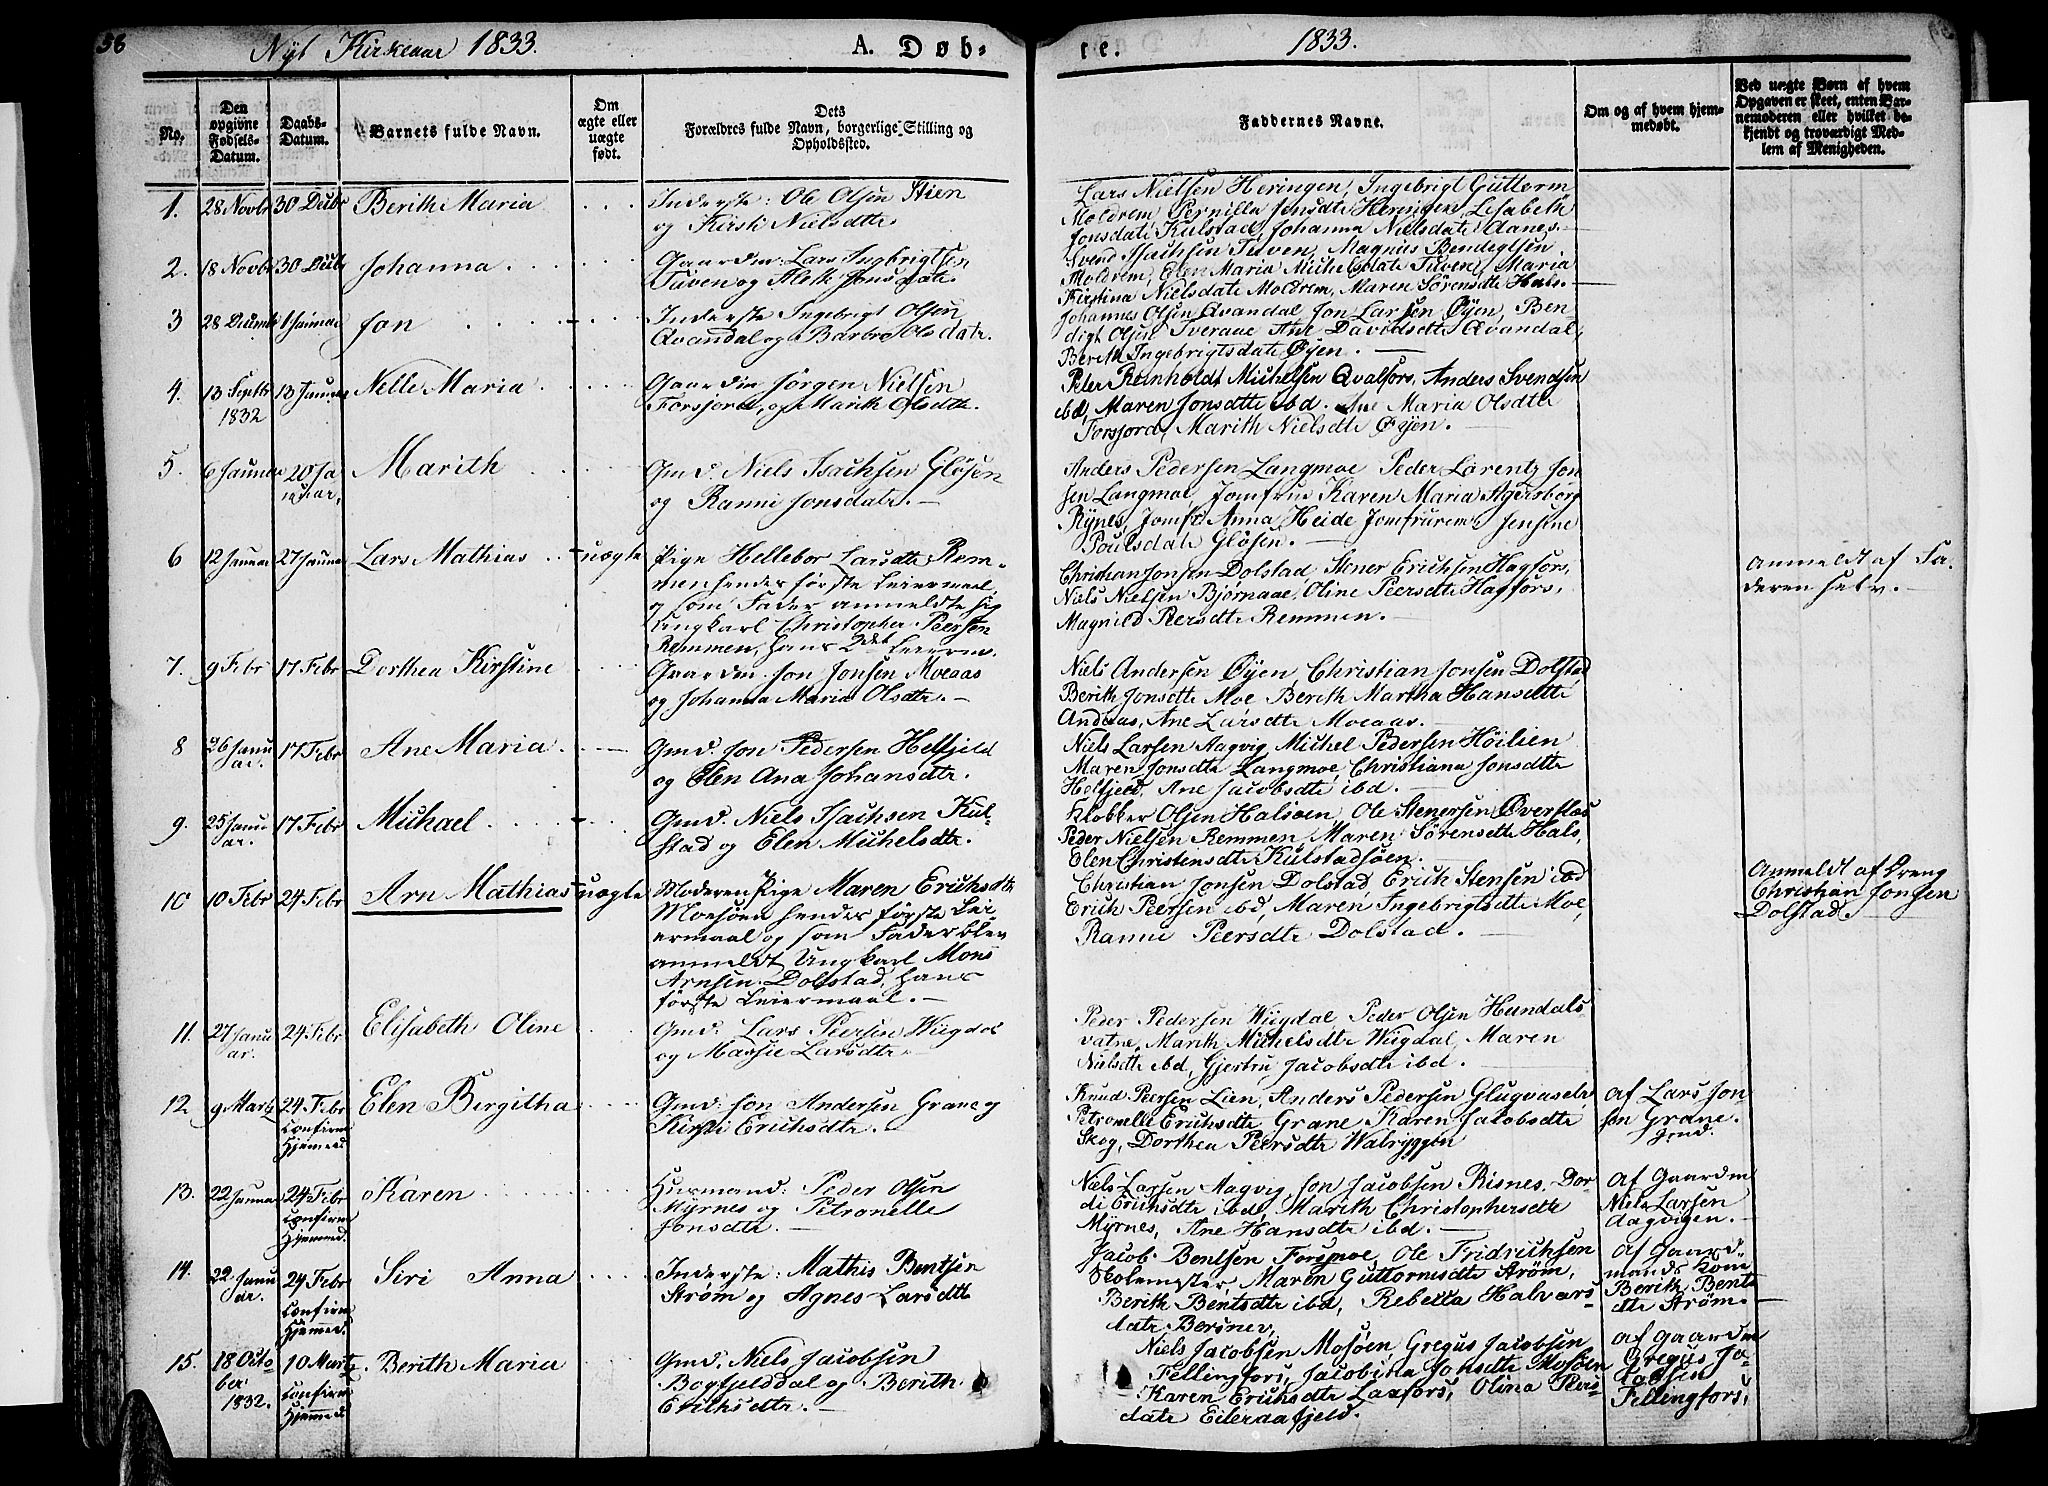 58
Nyt Kirkeaar 1833.
A. Døb-
te.
1833.
No.
Den opgivne Fødsels-Datum.
Daabs-Datum.
Barnets fulde Navn.
Om ægte eller uægte født.
Dets Forældres fulde Navn, borgerlige Stilling og Opholdssted.
Faddernes Navne.
Om og af hvem hjem-medøbt.
Ved uægte Børn af hvem Opgaven er skeet, enten Bar-nemoderen eller hvilket be-kjendt og troværdigt Med-lem af Menigheden.
1. 28 Novbr 30 Decbr Berith Maria
Inderste: Ole Olsen Stien
og Kirsti Nielsdtr
Lars Nielsen Heringen, Ingebrigt Guttorm
Moldrem, Pernilla Jonsdtr Heringen, Lisabeth
Jonsdatr Kulstad, Johanna Nielsdatr Aanes.
2. 18 Novbr 30 Decbr Johanna
Gaardm: Lars Ingbrigtsen
Tuven og Aleth Jonsdatr.
Svend Isachsen Tuven, Magnus Bendigtsen
Moldrem, Elen Maria Michelsdatr Tuven, Maria
Kirstina Nielsdatr Moldrem, Maren Sörensdtr Hals.
3 28 Decemb 1 Januar Jon
Inderste Ingebrigt Olsen
Qvandal og Barbro Olsdatr.
Johannes Olsen Qvandal, Jon Larsen Øyen, Ben-
digt Olsen Sveraae, Ane Davidsdtr Qvandal,
Berith Ingebrigtsdatr Øyen.
4. 13 Septbr 1832 13 Januar Nelle Maria
Gaardm Jørgen Nielsen
Forsjord, og Marith Olsdtr.
Peter Reinholdt Michelsen Qvalfors, Anders Svendsen
ibd, Maren Jonsdtr ibd. Ane Maria Olsdtr
Forsjord, Marith Nielsdtr Øyen.
5. 6 Januar 20 Ja
nuar. Marith
Gmd. Niels Isachsen Glösen
og Ranni Jonsdatr.
Anders Pedersen Langmoe Peder Lorentz Jon
sen Langmoe, Jomfrue Karen Maria Agersborg
Rynes, Jomfr. Anna Heide Jomfruem Jensine
Poulsdatr Glösen.
6 12 Januar 27 Januar Lars Mathias uægte
Pige Hellebor Larsdtr Rem-
men hendes første Leiermaal,
og som Fader anmeldte sig
Ungkarl Christopher Peersen
Remmen, hans 2det Leierm.
Christian Jonsen Dolstad Stener Erichsen Hagfors,
Niels Nielsen Bjørnaae, Oline Peersdtr Hagfors,
Magnild Peersdtr Remmen.
Anmeldt af Fa-
deren selv.
7. 9 Febr 17 Febr Dorthea Kirstine
Gaardm. Jon Jonsen Moeaas
og Johanna Maria Olsdtr.
Niels Andersen Øyen, Christian Jonsen Dolstad
Berith Jonsdtr Moe Berith Martha Hansdtr
Andaas, Ane Larsdtr Moeaas.
8 26 Janu
ar. 17 Febr Ane Maria
Gmd. Jon Pedersen Helfjeld
og Elen Ana Johansdtr.
Niels Larsen Aagvig Michel Pedersen Höilien
Maren Jonsdtr Langmoe, Christiana Jonsdtr
Helfjeld, Ane Jacobsdtr ibd.
9. 25 Janu
ar. 17 Febr Michael
Gmd. Niels Isachsen Kul-
stad og Elen Michelsdtr.
Klokker Olsen Halsøen, Ole Stenersen Øverflaa
Peder Nielsen Remmen, Maren Sörensdtr Hals,
Elen Christensdtr Kulstadsöen.
10 10 Febr 24 Febr Arn Mathias uægte
Moderen Pige Maren Erichsdtr
Moesöen hendes første Lei-
ermaal og som Fader blev
anmeldt Ungkarl Mons
Arnsen Dolstad, hans
første Leiermaal.
Christian Jonsen Dolstad, Erich Stensen ibd
Erich Peersen ibd, Maren Ingebrigtsdtr Moe,
Ranni Peersdtr Dolstad.
Anmeldt af Dreng
Christian Jonsen
Dolstad.
11. 27 Janu
ar. 24 Febr Elisabeth Oline
Gmd: Lars Peersen Wiigdal
og Massie Larsdtr.
Peder Pedersen Wiigdal Peder Olsen Hundals-
vatne, Marith Michelsdtr Wiigdal, Maren
Nielsdtr ibd, Gjertru Jacobsdtr ibd.
12. 9 Marts 24 Febr
confirm
Hjemmed. Elen Bergitha
Gmd: Jon Andersen Grane og
Kirsti Erichsdtr.
Knud Peersen Lien, Anders Pedersen Glugvaselv
Petronelle Erichsdtr, Grane Karen Jacobsdtr
Skog, Dorthea Peersdtr Walryggen
af Lars Jon-
sen Grane.
Gmd.
13. 22 Januar 24 Febr
confirm
Hjemmed. Karen
Husmand: Peder Olsen
Myrnes og Petronelle
Jonsdtr.
Niels Larsen Aagvig, Jon Jacobsen Risnes, Dor-
di Erichsdtr ibd, Marith Christophersdtr
Myrnes, Ane Hansdtr ibd.
af Gaardm
Niels Larsen
Aagvigen.
14. 22 Janu
ar. 24 Febr
confirm
Hjemmed. Siri Anna
Inderste: Mathis Bentsen
Strøm og Agnes Larsdtr
Jacob Bentsen Forsmoe, Ole Fridrichsen
Skolemester, Maren Guttormsdtr Strøm,
Berith Bentsdtr ibd, Rebecca Halvars-
datr Bersnev,
af Gaard-
mands Kone
Berith Bents
dtr Strøm.
15. 18 Octo-
ber
1832. 10 Marts
confirm
Hjemmed. Berith Maria
Gmd. Niels Jacobsen
Bogfjelddal og Berith
Erichsdtr.
Niels Jacobsen Mosöen, Gregus Jacobsen
Fellingfors, Jacobina Jonsdtr Mosöen
Karen Erichsdtr Laxfors, Olina Peers-
datr Eiteraafjeld.
af Gaardm
Gregus Ja-
cobsen
Fellingfors,